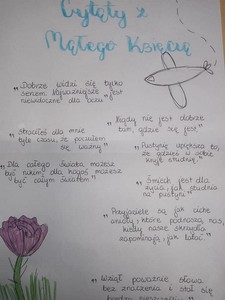 Cytaty z
Małego Księcia
„Dobrze widzi się tylko
sercem. Najważniejsze jest
niewidoczne dla oczu"
„Nigdy nie jest dobrze
tam, gdzie się jest"
„Straciłeś dla mnie
tyle czasu, że poczułem
się ważny"
„Pustynię upiększa to,
że gdzieś w sobie
kryje studnię"
„Dla całego świata możesz
być nikim, dla kogoś możesz
być całym światem"
„Śmiech jest dla
życia jak studnia
na pustyni"
„Przyjaciele są jak ciche
anioły, które podnoszą nas,
kiedy nasze skrzydła
zapominają jak latać"
„Wziął poważnie słowa
bez znaczenia i stał się